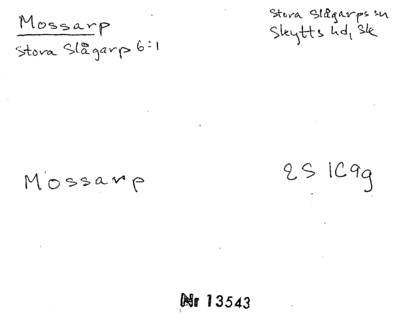 Mossarp
Stora Slågarp 6:1
Stora Slågarps sn
Skytts hd, Sk
Mossarp
2S 1C9g
Nr 13543